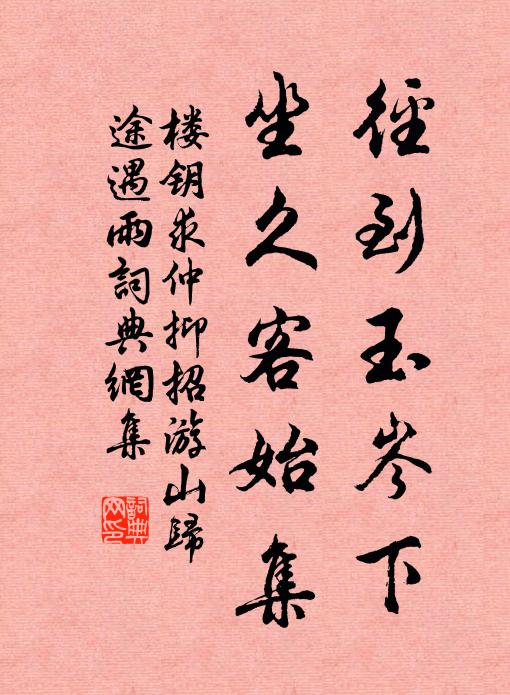 徑到玉岑下
坐久客始集
楼鑰求仲抑招游山歸
途遇雨詞典網集
詞典網印